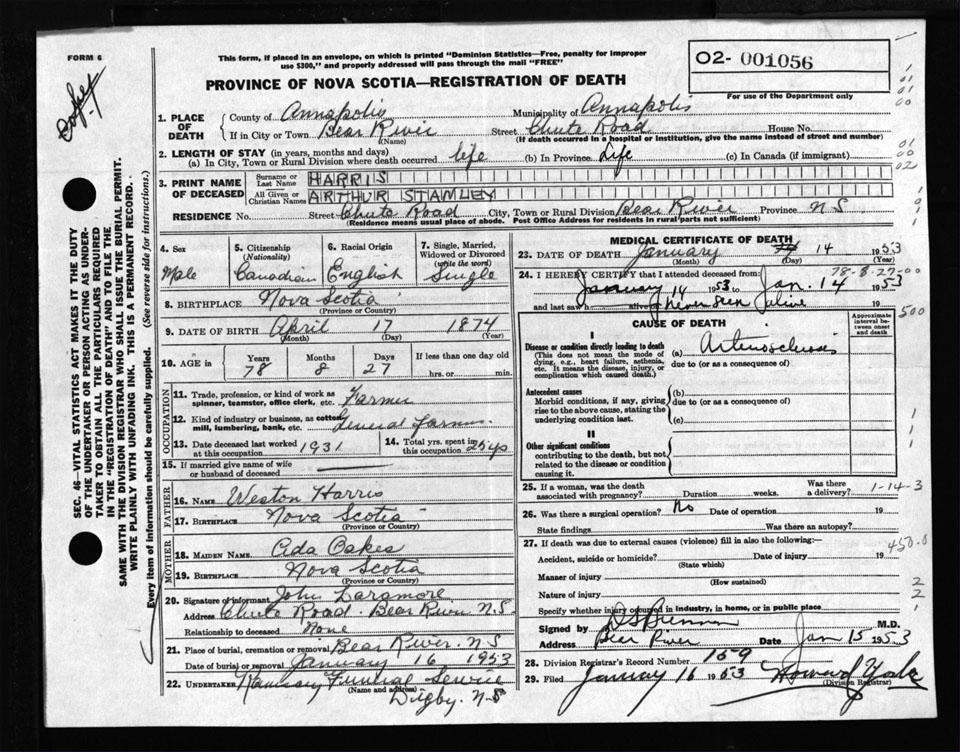 FORM 6
This form, if placed in an envelope, on which is printed "Dominion Statistics—Free, penalty for improper
use $300," and properly addressed will pass through the mail "FREE"
PROVINCE OF NOVA SCOTIA—REGISTRATION OF DEATH
02- 001056
For use of the Department only
1. PLACE OF DEATH
County of Annapolis Municipality of Annapolis
If in City or Town Bear River Street Chute Road House No.
(Name) (If death occurred in a hospital or institution, give the name instead of street and number)
2. LENGTH OF STAY (in years, months and days)
(a) In City, Town or Rural Division where death occurred life (b) In Province Life (c) In Canada (if immigrant)
3. PRINT NAME OF DECEASED
Surname or Last Name HARRIS
All Given or Christian Names ARTHUR STANLEY
RESIDENCE No. Street Chute Road City, Town or Rural Division Bear River Province N S
(Residence means usual place of abode. Post Office Address for residents in rural parts not sufficient)
4. Sex Male
5. Citizenship (Nationality) Canadian
6. Racial Origin English
7. Single, Married, Widowed or Divorced (write the word) Single
8. BIRTHPLACE Nova Scotia
(Province or Country)
9. DATE OF BIRTH April 17 1874
(Month) (Day) (Year)
10. AGE in Years 78 Months 8 Days 27 If less than one day old hrs. or min.
OCCUPATION
11. Trade, profession, or kind of work as spinner, teamster, office clerk, etc. Farmer
12. Kind of industry or business, as cotton mill, lumbering, bank, etc. General Farm
13. Date deceased last worked at this occupation 1931
14. Total yrs. spent in this occupation 25 yo
15. If married give name of wife or husband of deceased
FATHER
16. NAME Weston Harris
17. BIRTHPLACE Nova Scotia
(Province or Country)
MOTHER
18. MAIDEN NAME Ada Oakes
19. BIRTHPLACE Nova Scotia
(Province or Country)
20. Signature of informant John Laramore
Address Chute Road. Bear River N.S.
Relationship to deceased None
21. Place of burial, cremation or removal Bear River. N.S
Date of burial or removal January 16 1953
22. UNDERTAKER Ramsay Funeral Service
(Name and address)
Digby. N-S
MEDICAL CERTIFICATE OF DEATH
23. DATE OF DEATH January 14 1953
(Month) (Day)
78-8-27-00
24. I HEREBY CERTIFY that I attended deceased from
January 14 1953 to Jan. 14 1953
and last saw alive never seen alive 19
CAUSE OF DEATH
Approximate interval between onset and death
I
Disease or condition directly leading to death
(This does not mean the mode of dying, e.g., heart failure, asthenia, etc. It means the disease, injury, or complication which caused death.)
(a) Arteriosclerosis
due to (or as a consequence of)
Antecedent causes
Morbid conditions, if any, giving rise to the above cause, stating the underlying condition last.
(b)
due to (or as a consequence of)
(c)
II
Other significant conditions
contributing to the death, but not related to the disease or condition causing it.
25. If a woman, was the death associated with pregnancy? Duration weeks. Was there a delivery?
1-14-3
26. Was there a surgical operation? No Date of operation 19
State findings Was there an autopsy?
27. If death was due to external causes (violence) fill in also the following:
Accident, suicide or homicide? Date of injury 19
(State which)
Manner of injury
(How sustained)
Nature of injury
Specify whether injury occurred in industry, in home, or in public place
Signed by M.D.
Address Bear River Date Jan 15 1953
28. Division Registrar's Record Number 159
29. Filed January 16 1953 Howard
(Division Registrar)
SEC. 46—VITAL STATISTICS ACT MAKES IT THE DUTY
OF THE UNDERTAKER OR PERSON ACTING AS UNDER-
TAKER TO OBTAIN ALL THE PARTICULARS REQUIRED
IN THE "REGISTRATION OF DEATH" AND TO FILE THE
SAME WITH THE DIVISION REGISTRAR WHO SHALL ISSUE THE BURIAL PERMIT.
WRITE PLAINLY WITH UNFADING INK. THIS IS A PERMANENT RECORD.
Every item of information should be carefully supplied. (See reverse side for instructions.)